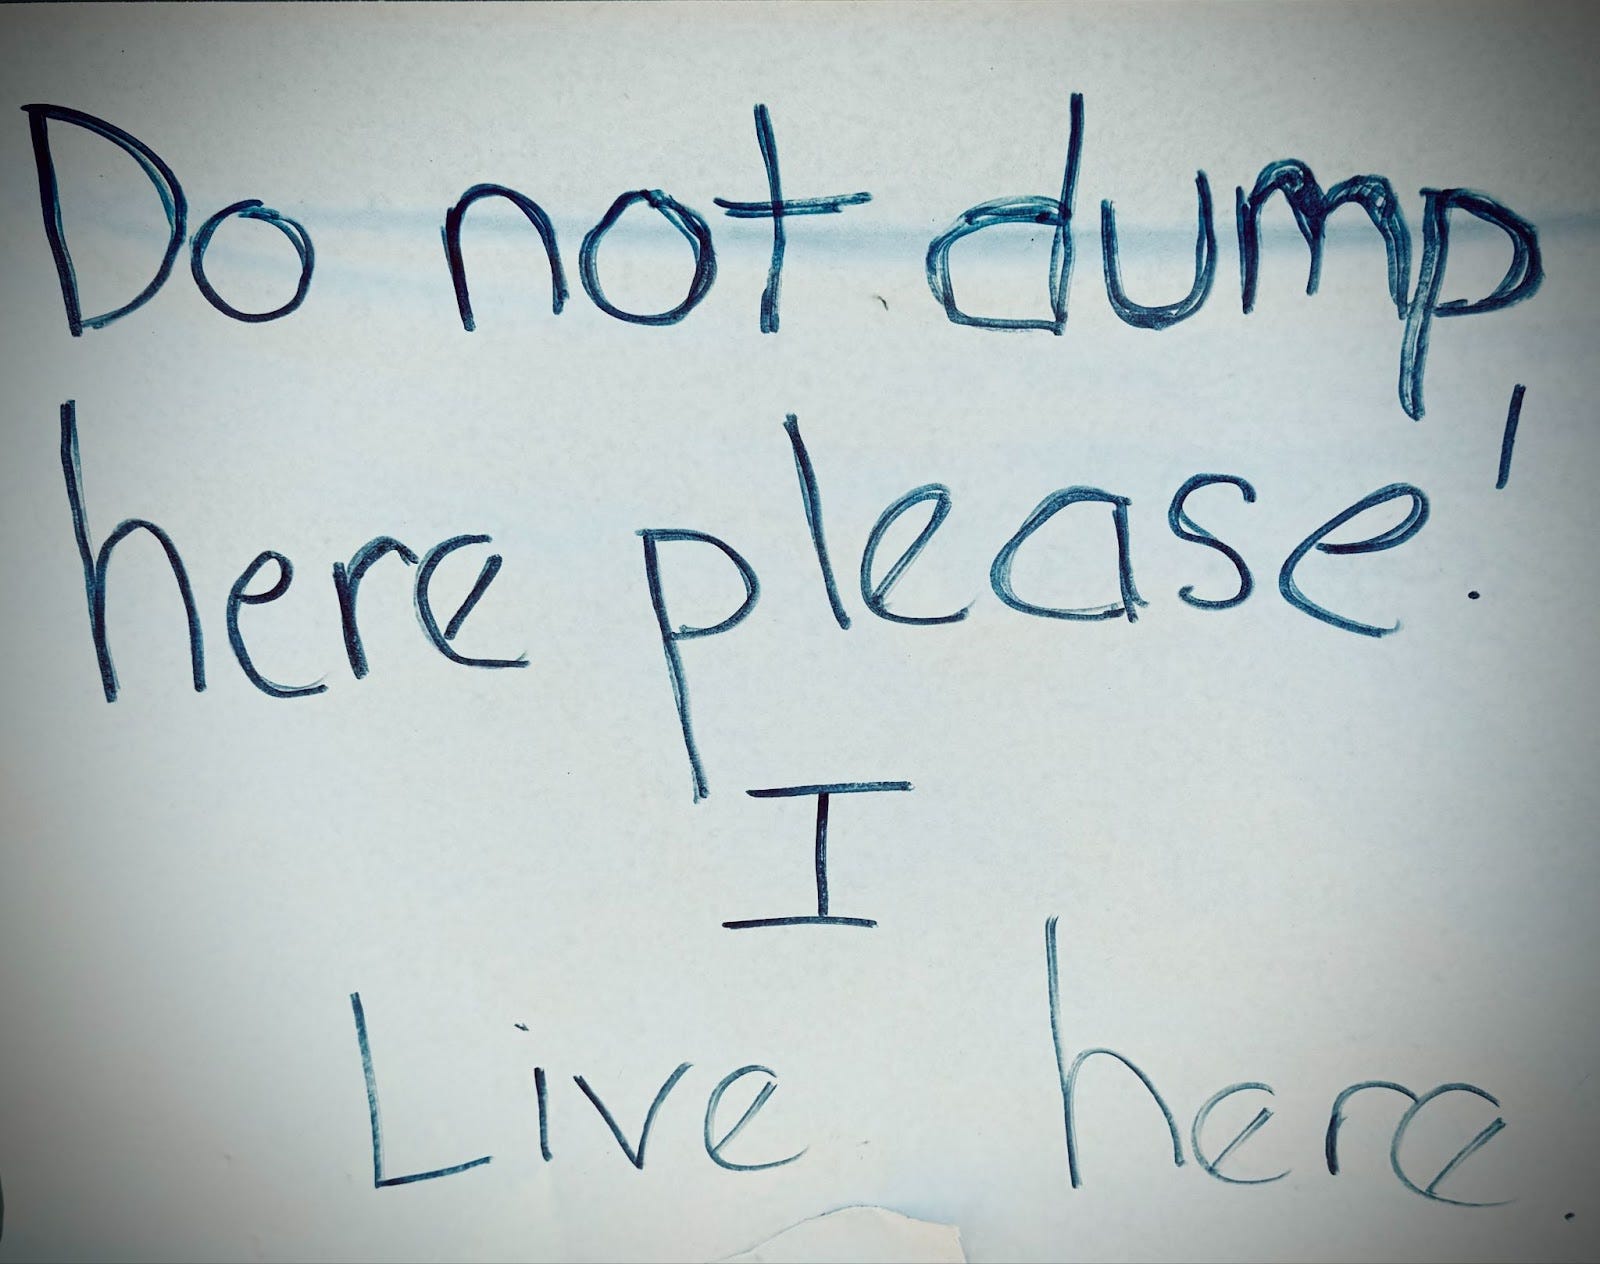 Do not dump
here please!
I
Live here.